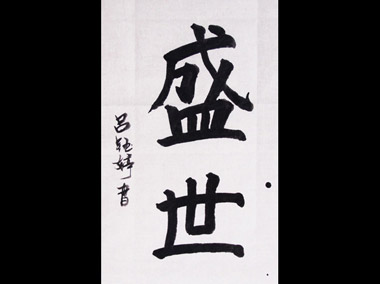 盛世
吕钰婷书